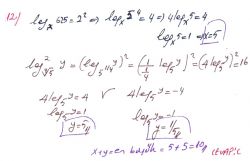 12) log_x 625 = 2² ⇒ log_x 5⁴ = 4 ⇒ 4 log_x 5 = 4
log_x 5 = 1 ⇒ x = 5
log²_{⁴√5} y = (log_{5^{1/4}} y)² = (1/(1/4) log_5 y)² = (4 log_5 y)² = 16
4 log_5 y = 4 v 4 log_5 y = -4
log_5 y = 1 log_5 y = -1
y = 5 y = 1/5
x + y = en büyük = 5 + 5 = 10 CEVAP: C